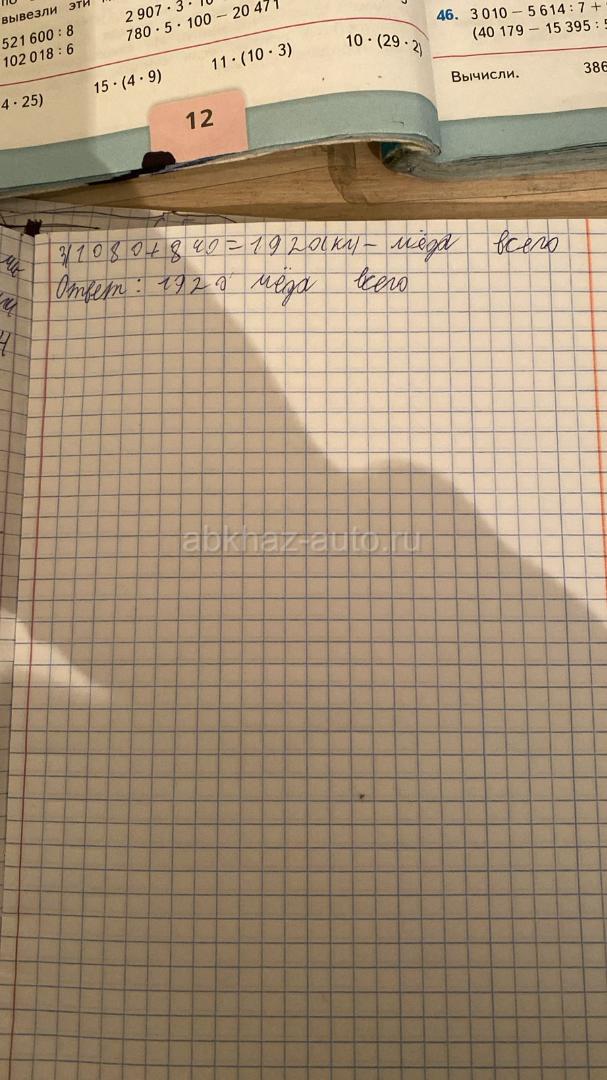 вывезли эти
521 600 : 8
102 018 : 6
2 907 · 3 · 10
780 · 5 · 100 − 20 471
4 · 25)
15 · (4 · 9)
11 · (10 · 3)
10 · (29 · 2)
12
46. 3 010 − 5 614 : 7 +
(40 179 − 15 395 :
Вычисли.
386
3) 1080 + 840 = 1920 (кг) – мёда всего
Ответ: 1920 мёда всего
abkhaz-auto.ru